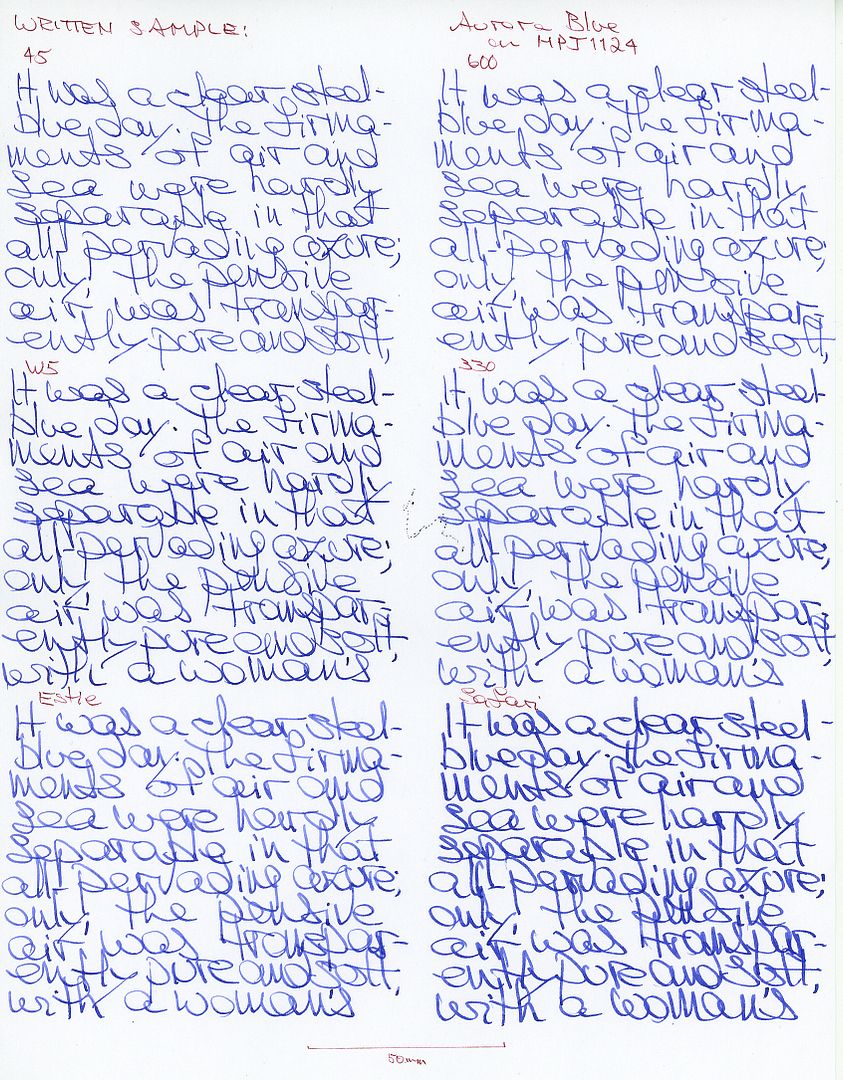 WRITTEN SAMPLE:
Aurora Blue
on HPJ1124
45
It was a clear steel-
blue day. The firma-
ments of air and
sea were hardly
separable in that
all-pervading azure;
only, the pensive
air was transpar-
ently pure and soft,
600
It was a clear steel-
blue day. The firma-
ments of air and
sea were hardly
separable in that
all-pervading azure;
only, the pensive
air was transpar-
ently pure and soft,
W5
It was a clear steel-
blue day. The firma-
ments of air and
sea were hardly
separable in that
all-pervading azure;
only, the pensive
air was transpar-
ently pure and soft,
with a woman's
330
It was a clear steel-
blue day. The firma-
ments of air and
sea were hardly
separable in that
all-pervading azure;
only, the pensive
air was transpar-
ently pure and soft,
with a woman's
Estie
It was a clear steel-
blue day. The firma-
ments of air and
sea were hardly
separable in that
all-pervading azure;
only, the pensive
air was transpar-
ently pure and soft,
with a woman's
Safari
It was a clear steel-
blue day. The firma-
ments of air and
sea were hardly
separable in that
all-pervading azure;
only, the pensive
air was transpar-
ently pure and soft,
with a woman's
50mm